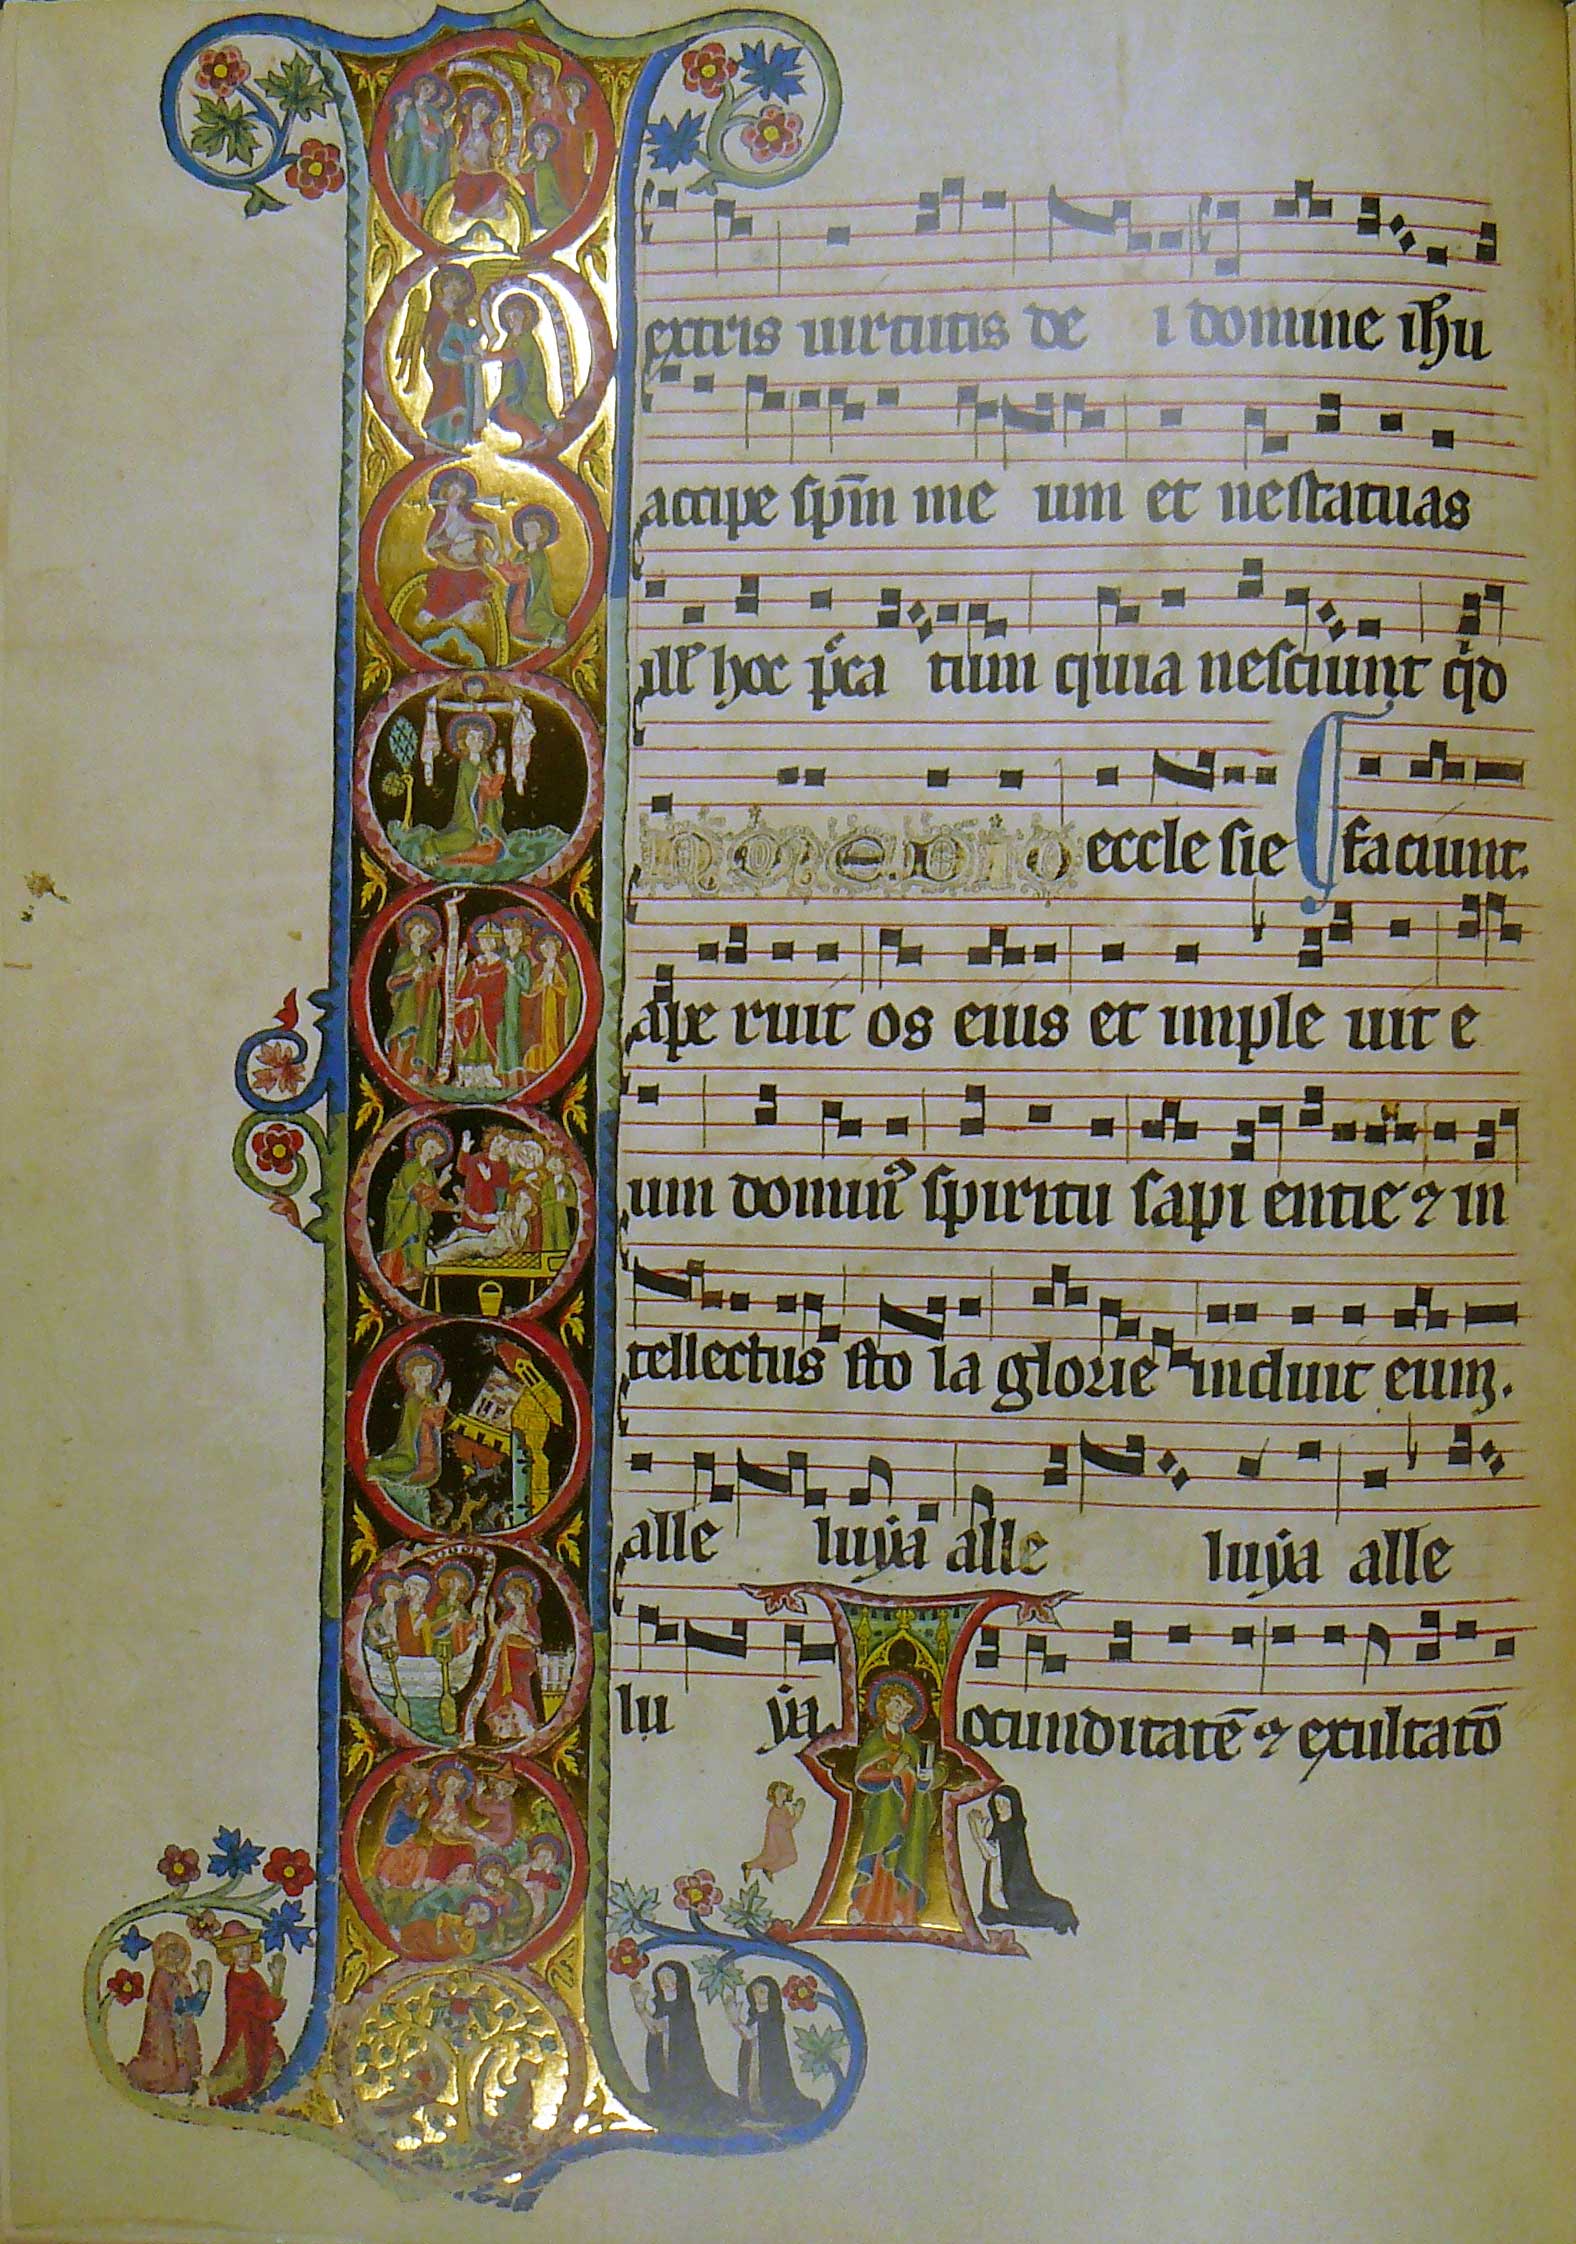 extris uirtutis de i domine ihu
accipe spm̄ me um et ne statuas
ill' hoc p̄cca tum quia nesciunt qd
In medio eccle sie faciunt.
ape ruit os eius et imple uit e
um domin' spiritu sapi entie ⁊ in
tellectus sto la glorie induit eum.
alle luẏa alle luẏa alle
lu ẏa Iocunditatē ⁊ exultatō